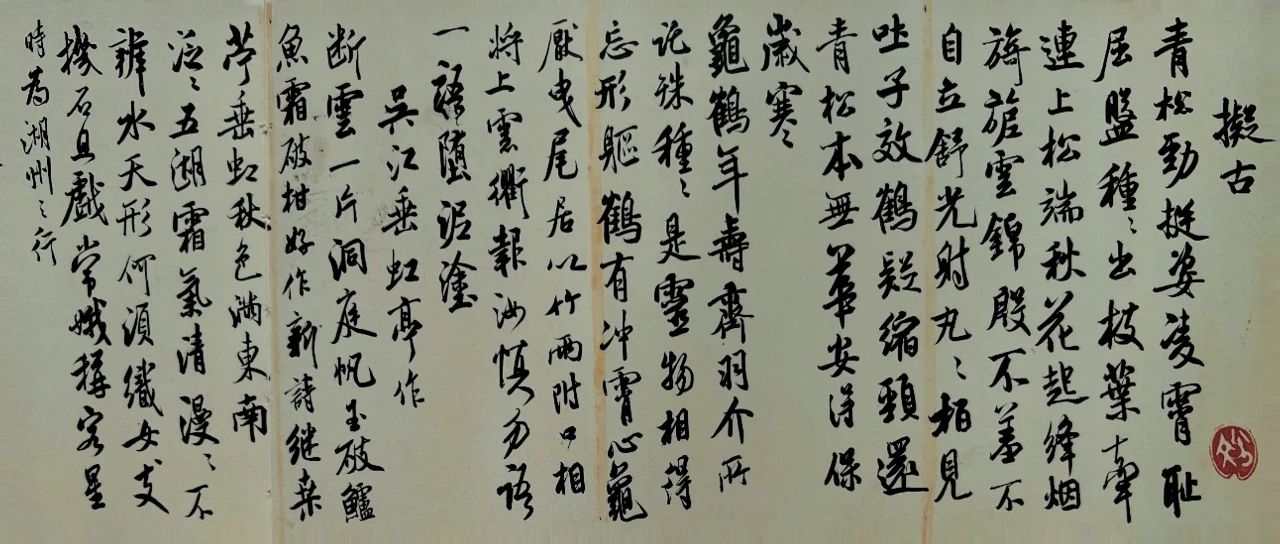 擬古
青松勁挺姿凌霄恥
屈盤種〻出枝葉牽
連上松端秋花起絳烟
旖旎雲錦殷不羞不
自立舒光射丸〻柏見
吐子效鶴疑縮頸還
青松本無華安得保
歲寒〻
龜鶴年壽齊羽介所
託殊種〻是靈物相得
忘形軀鶴有冲霄心龜
厭曳尾居以竹兩附口相
將上雲衢報汝慎勿語
一語墮泥塗
吳江垂虹亭作
断雲一片洞庭帆玉破鱸
魚霜破柑好作新詩継桑
苧垂虹秋色満東南
泛〻五湖霜氣清漫〻不
辨水天形何須織女支
機石且戲常娥稱客星
時為湖州〻行